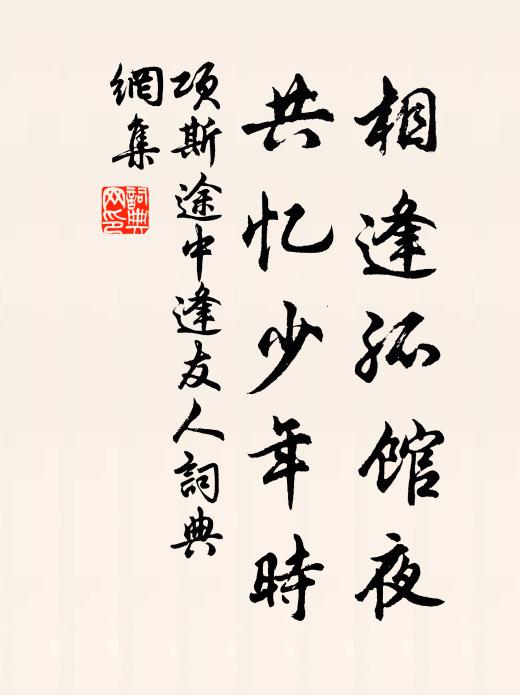 相逢孤馆夜
共忆少年時
项斯途中逢友人詞典
網集
詞典
网印